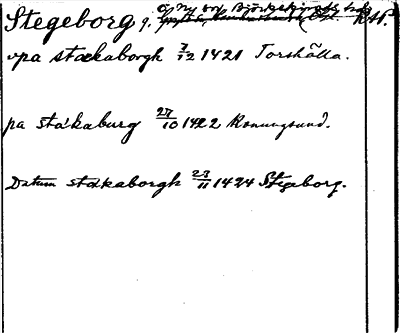 Stegeborg g. Ö. Ny
vpa stækaborgh 7/12 1421 Torshälla.
pa stakaburg 27/10 1422 Konungsund.
Datum stakaborgh 27/11 1424 Stegeborg.